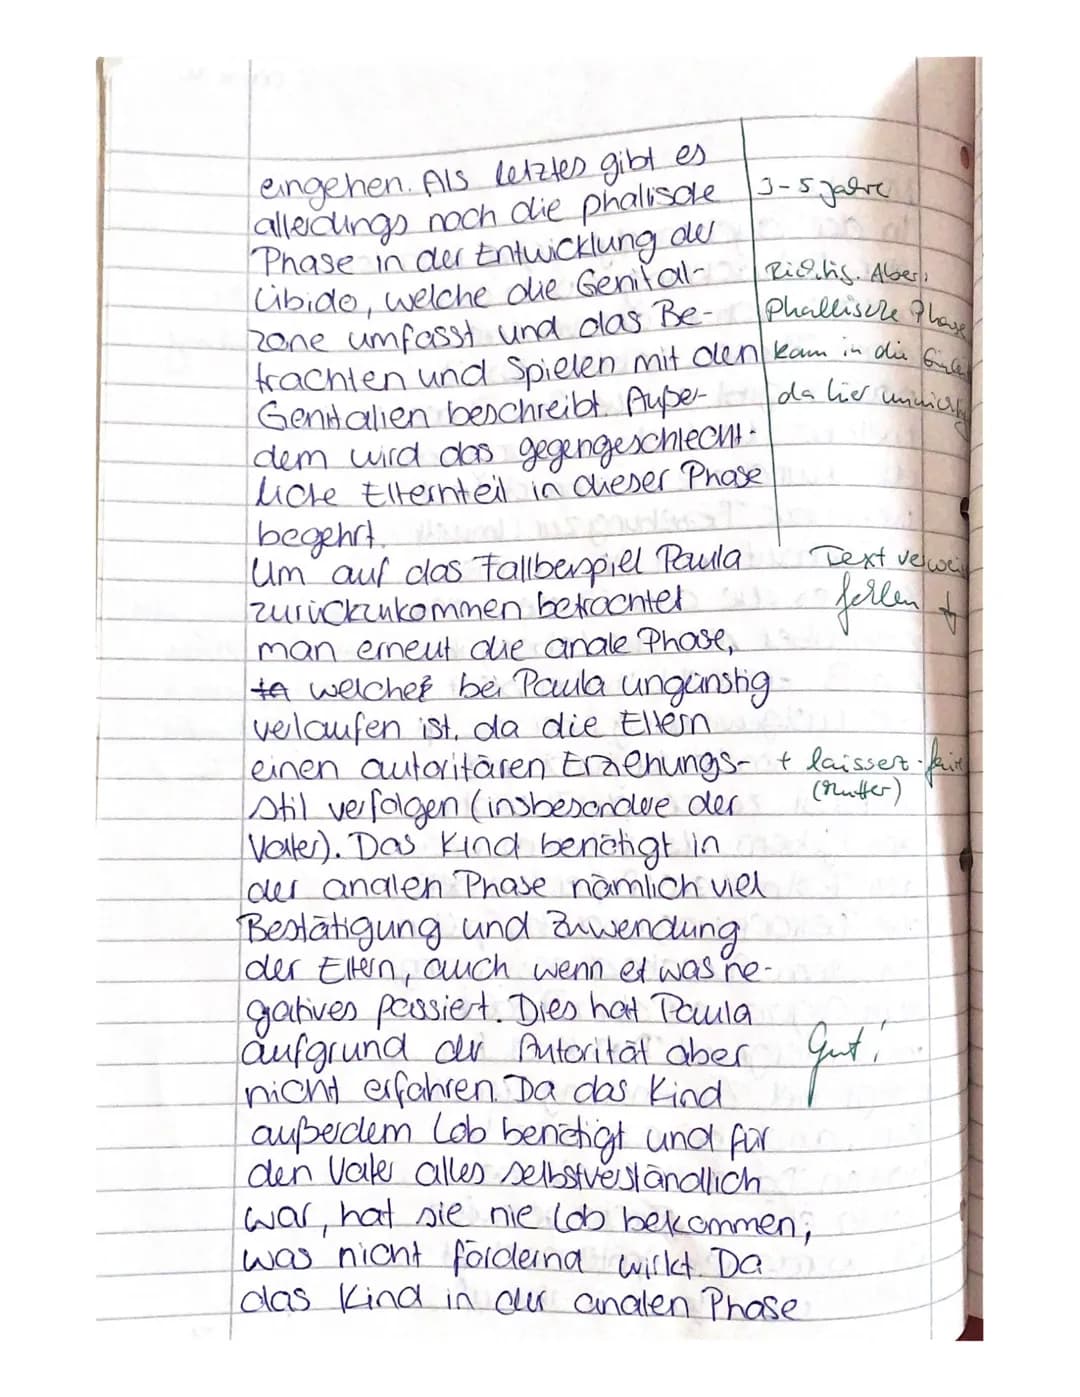 eingehen. Als letztes gibt es
allerdings noch die phalische
3-5 Jahre
Phase in der Entwicklung der
Libido, welche die Genital-
Richtig. Aber:
zone umfasst und das Be-
Phallische Phase
trachten und Spielen mit den
kam in die
Genitalien beschreibt. Außer-
da hier
dem wird das gegengeschlecht-
liche Elternteil in dieser Phase
begehrt.
Um auf das Fallbeispiel Paula
Text
zurückzukommen betrachtet
fehlen
man erneut die anale Phase,
welche bei Paula ungünstig
verlaufen ist, da die Eltern
einen autoritären Erziehungs-
+ laissez-fair
stil verfolgen (insbesondere der
(Mutter)
Vater). Das Kind benötigt in
der analen Phase nämlich viel
Bestätigung und Zuwendung
der Eltern, auch wenn etwas ne-
gatives passiert. Dies hat Paula
aufgrund der Autorität aber
Gut!
nicht erfahren. Da das Kind
außerdem Lob benötigt und für
den Vater alles selbstverständlich
war, hat sie nie Lob bekommen,
was nicht fördernd wirkt. Da
das Kind in der analen Phase